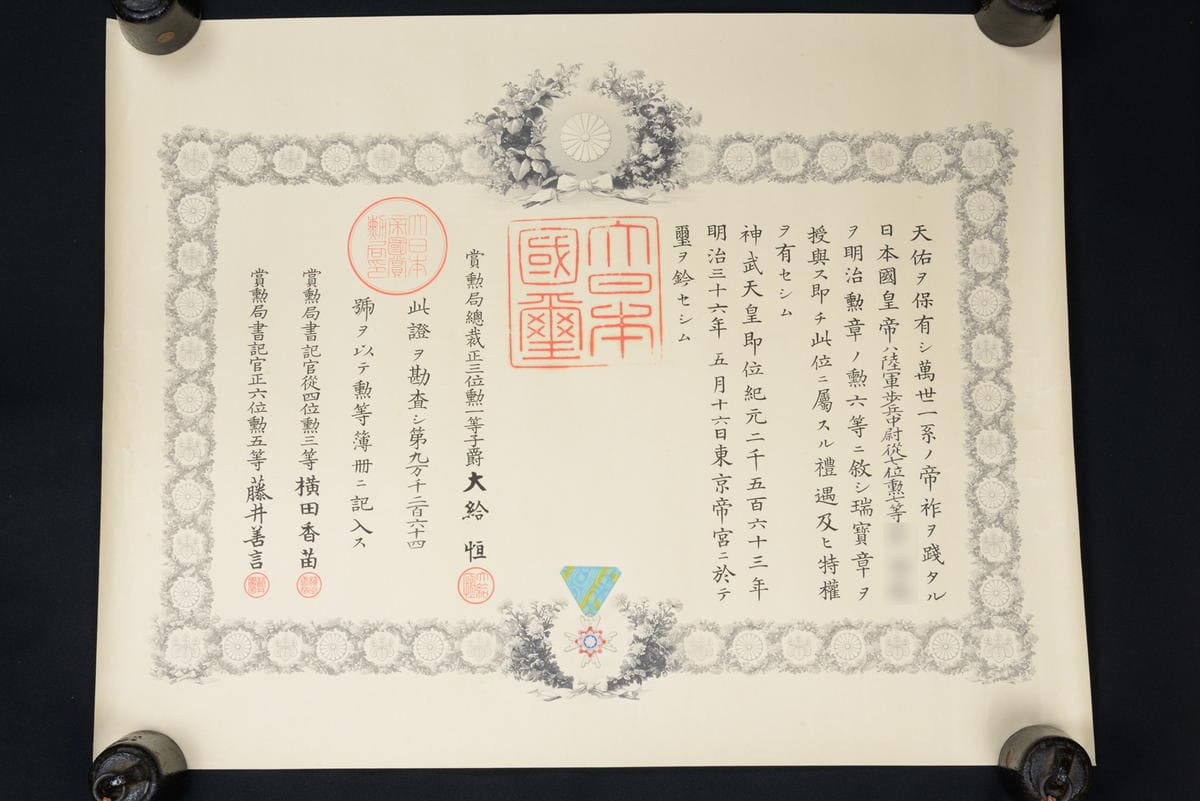 天佑ヲ保有シ萬世一系ノ帝祚ヲ踐タル
日本國皇帝ハ陸軍歩兵中尉從七位勲七等
ヲ明治勲章ノ勲六等ニ敘シ瑞寶章ヲ
授與ス即チ此位ニ屬スル禮遇及ヒ特權
ヲ有セシム
神武天皇即位紀元二千五百六十三年
明治三十六年五月十六日東京帝宮ニ於テ
璽ヲ鈐セシム
大日本
國璽
賞勲局總裁正三位勲一等子爵大給恒
此證ヲ勘査シ第九万千二百六十四
號ヲ以テ勲等簿冊ニ記入ス
大日本
帝國賞
勲局印
賞勲局書記官從四位勲三等横田香苗
賞勲局書記官正六位勲五等藤井善言